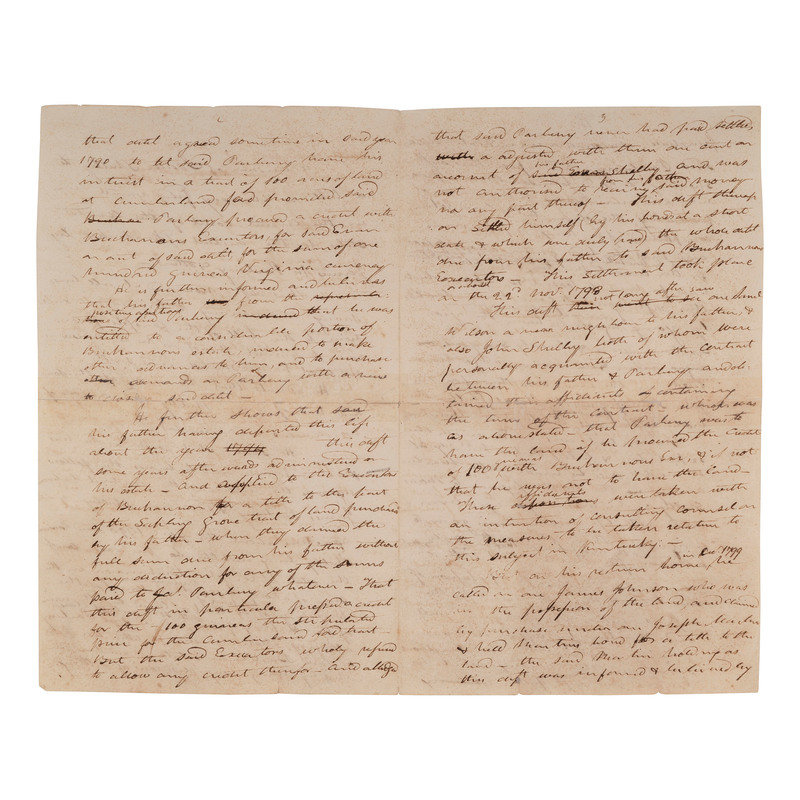 2
that debt agreed sometime in said year
1790 to let said Parberry have his
intrust in a tract of 100 acres of land
at Cumberland ford provided said
Parberry procured a credit with
Buchannons Executors for said Evan
on acct of said debt for the sum of one
hundred guineas Virginia currency
He is further informed and believes
that his father from the
positive assertions of the Parberry that he was
intitled to a considerable portion of
Buchannons estate, induced to make
other advances to him, and to purchase
demands on Parberry with a view
to close said debt —
He further shows that said
his father having departed this life
about the year 1794 this deft
some years afterwards administered on
his estate — and applied to the Executors
of Buchannon for a title to the part
of the Sapling Grove tract of land purchased
by his father — when they claimed the
full sum due from his father without
any deduction for any of the sums
paid to sd Parberry whatever — That
this deft in particular pressed a credit
for the 100 guineas the stipulated
price for the Cumberland ford tract
But the said Executors wholy refused
to allow any credit therefor — and alledged
3
that said Parberry never had paid settled
or adjusted with them one cent on
account of his father Shelby — and was
not authorised to receive from his father said money
nor any part thereof — This deft thereup
on settled himself (by his bonds at a short
date & which are duly paid) the whole debt
due from his father to said Buchannons
Executors — This settlement took place
on the 22d Nov. 1798 —
This deft not long after saw one Saml
Wilson a near neighbour to his father, &
also John Shelby both of whom were
personally acquainted with the contract
between his father & Parberry and ob
tained their affidavits containing
the terms of this contract — which was
as above stated — that Parberry was to
have the land if he procured the credit
of 100 guineas with Buchannons Exrs, & if not
that he was not to have the land —
These affidavits were taken with
an intention of consulting counsel on
the measures to be taken relative to
this subject in Kentucky. —
That on his return home in Decr 1799 he
called on one James Johnson who was
in the possession of the land and claimed
by purchase under one Joseph
& held bond for a title to the
land — the said holding as
this deft was informed & believed by